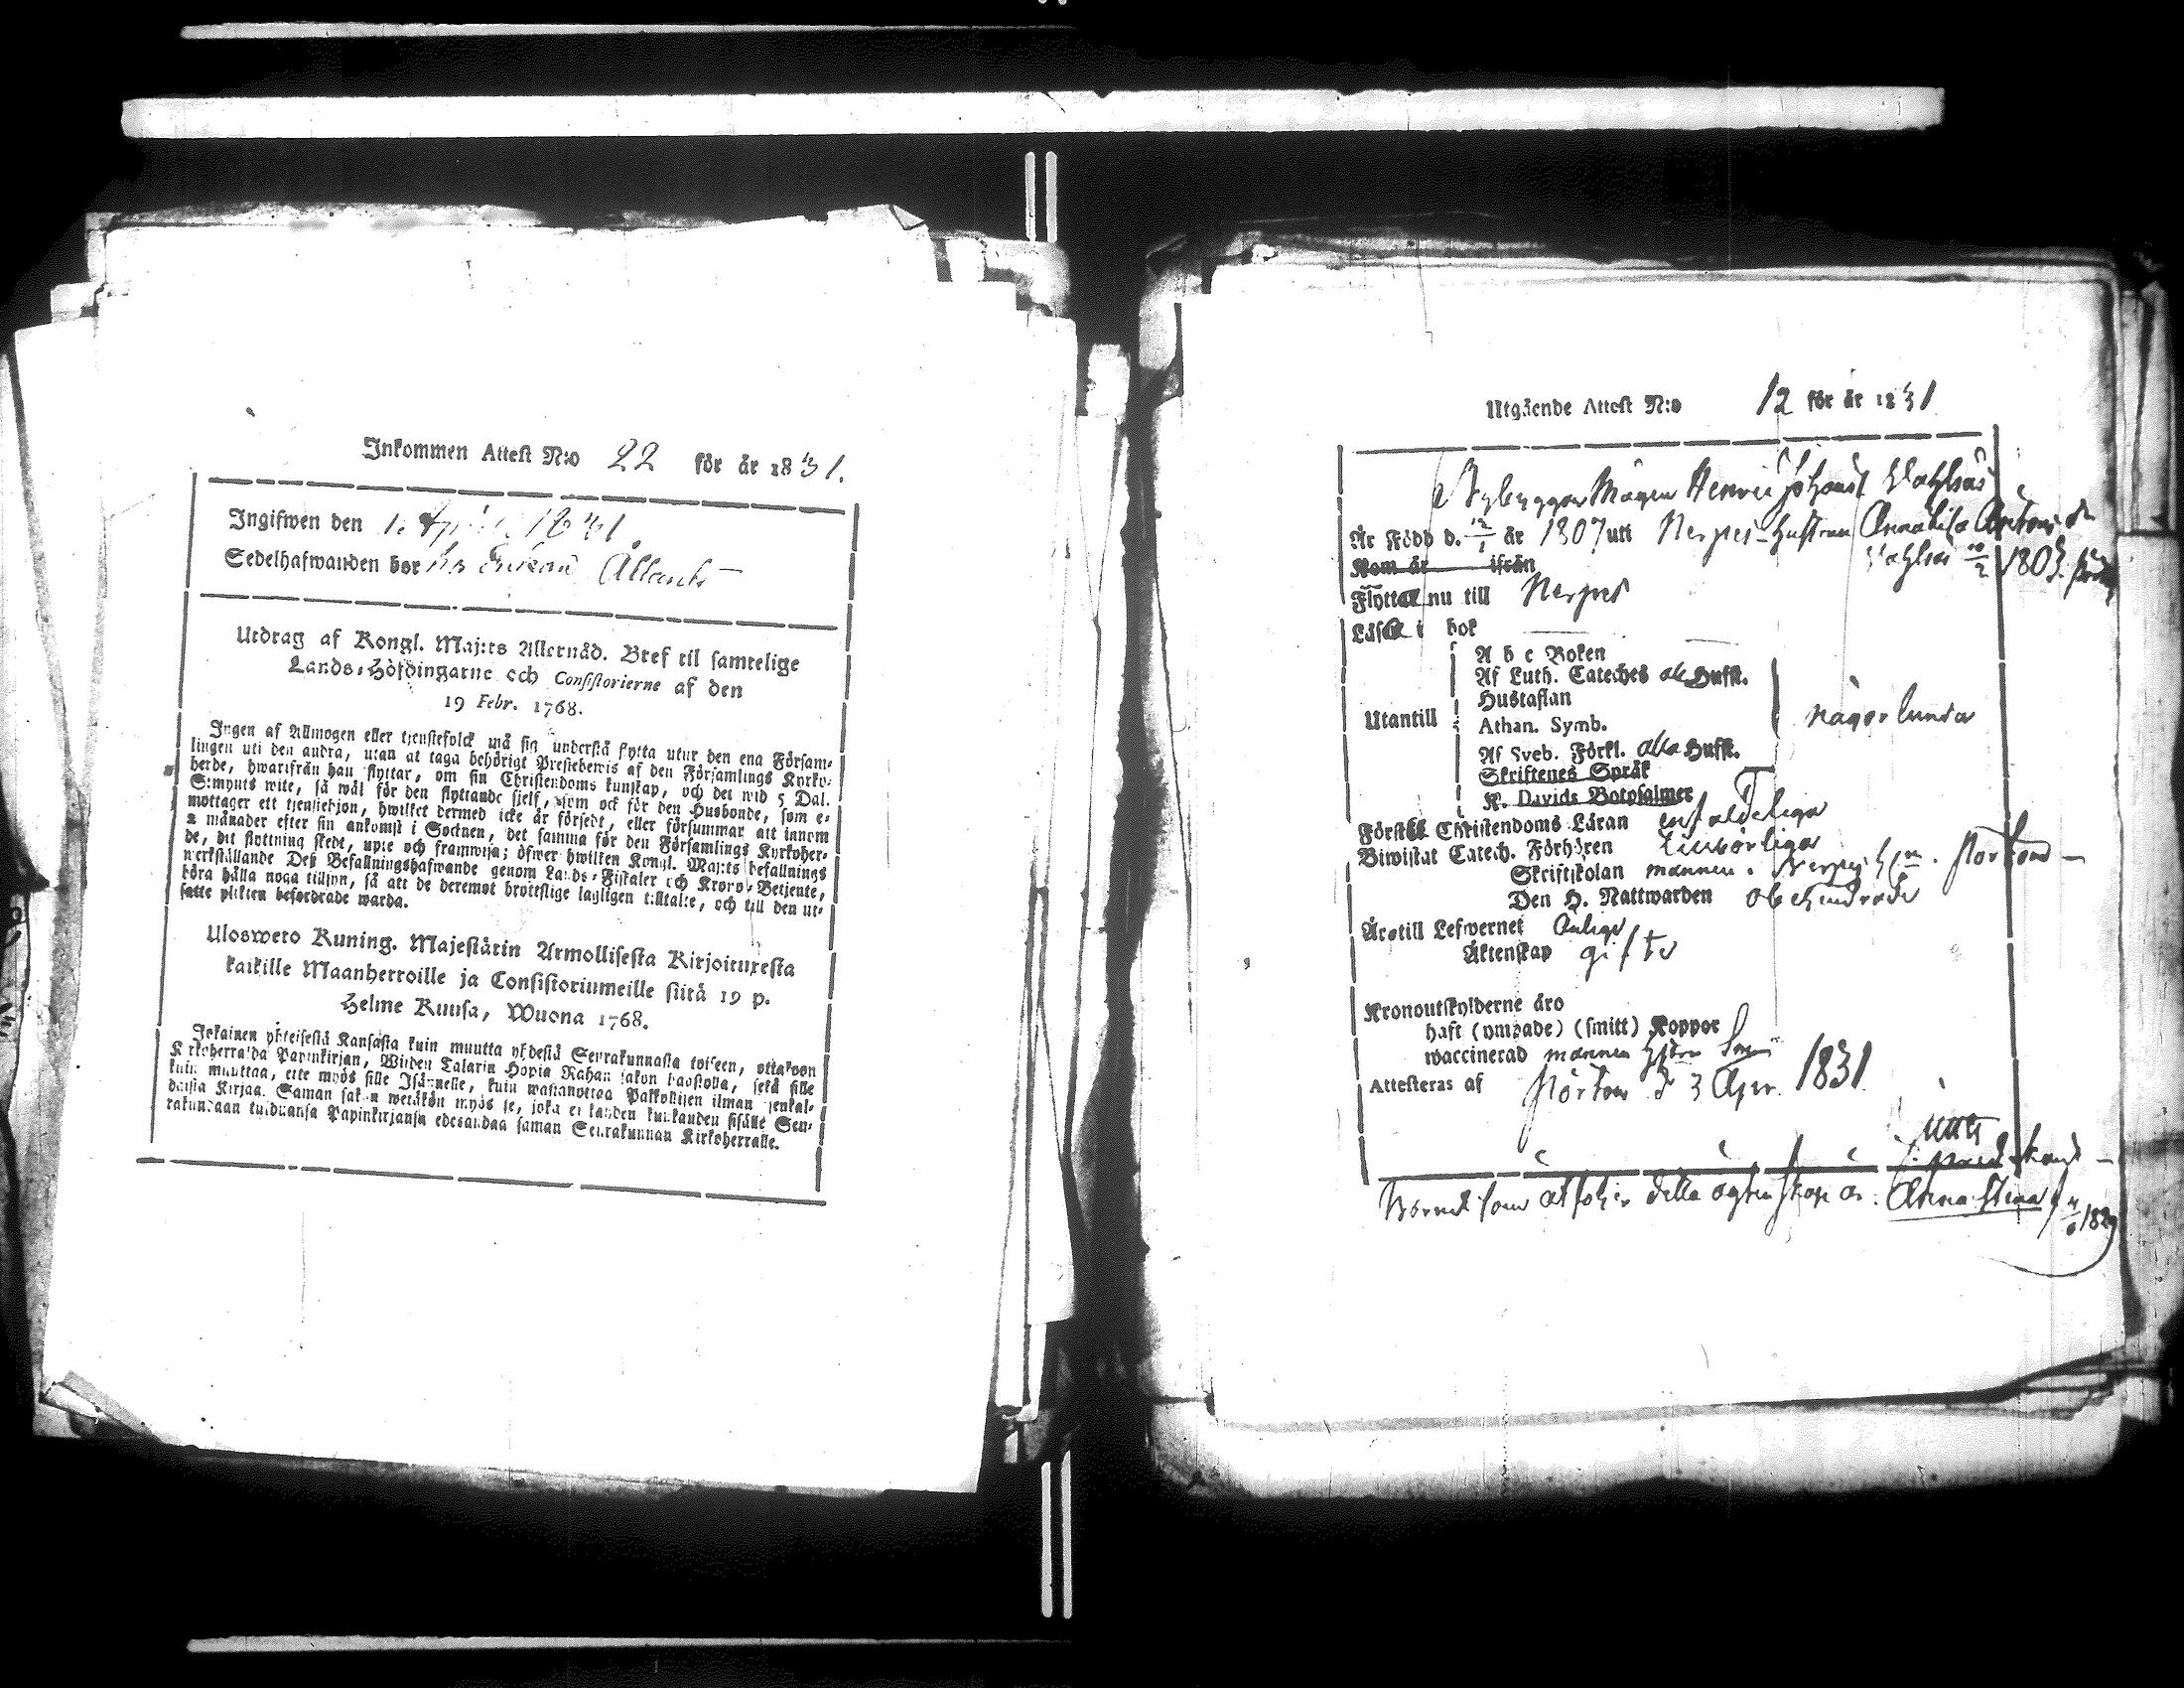 Inkommen Attest N:o 22 för år 1831.
Ingifwen den 1. April 1831.
Sedelhafwanden bor hos
Utdrag af Kongl. Maj:ts Allernåd. Bref til samtelige
Lands-Höfdingarne och Consistorierne af den
19 Febr. 1768.
Ingen af Allmogen eller tjenstefolck må sig understå flytta utur den ena Försam-
lingen uti den andra, utan at taga behörigt Prestebewis af den Församlings Kyrko-
herde, hwarifrån han flyttar, om sin Christendoms kunskap, och det wid 5 Dal.
S:mynts wite, så wäl för den flyttande sjelf, som ock för den Husbonde, som e-
mottager ett tjenstehjon, hwilket dermed icke är försedt, eller försummar att innom
2 månader efter sin ankomst i Socknen, det samma för den Församlings Kyrkoher-
de, dit flyttning skedt, upte och framwisa; öfwer hwilken Kongl. Maj:ts befallnings
werkställande Deß Befallningshafwande genom Lands-Fiskaler och Krono-Betjente,
böra hålla noga tillsyn, så att de deremot brottslige lagligen tilltalte, och till den ut-
satte plikten befordrade warda.
Ulosweto Kuning. Majestätin Armollisesta Kirjoituxesta
kaikille Maanherroille ja Consistoriumeille siitä 19 p.
Helme Kuusa, Wuona 1768.
Jokainen yhteisestä Kansasta kuin muutta yhdestä Seurakunnasta toiseen, ottakoon
Kirkoherralda Papinkirjan, Wijden Talarin Hopia Rahan sakon haastolla, sekä sille
kuin muuttaa, ette myös sille Isännelle, kuin wastanottaa Palkollisen ilman senkal-
daista Kirjaa. Saman sakon wetäkön myös se, joka ei kahden kuukauden sisälle Seu-
rakundaan tulduansa Papinkirjansa edesandaa saman Seurakunnan Kirkoherralle.
Utgående Attest N:o 12 för år 1831
Nybyggar Mågen Henric Johanss
Är Född d. 12/1 år 1807 uti Nerpes Hustrun
1803
Kom år ifrån
Flyttar nu till Nerpes
Läser i bok
A b c Boken
Af Luth. Cateches alla Hufst.
Hustaflan
Utantill Athan. Symb. någorlunda
Af Sveb. Förkl. alla Hufst.
Skriftenes Språk
K. Davids Botpsalmer
Förstår Christendoms Läran enfaldeliga
Biwistat Catech. Förhören
Skriftskolan mannen i Nerpes
Den H. Nattwarden obehindrade
Äro till Lefwernet ärliga
Äktenskap gifte
Kronoutskylderne äro
haft (ympade) (smitt) Koppor
waccinerad mannen
Attesteras af
d 3 Apr. 1831
Barnet som åtföljer detta ägtenskap är: Anna Stina f. 1829